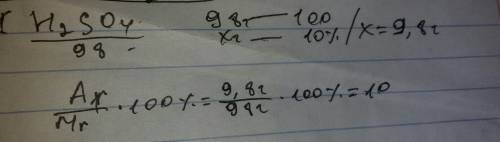 H₂SO₄
98
98г — 100
xг — 10% / x = 9,8г
Ar/Mr · 100% = 9,8г/98г · 100% = 10